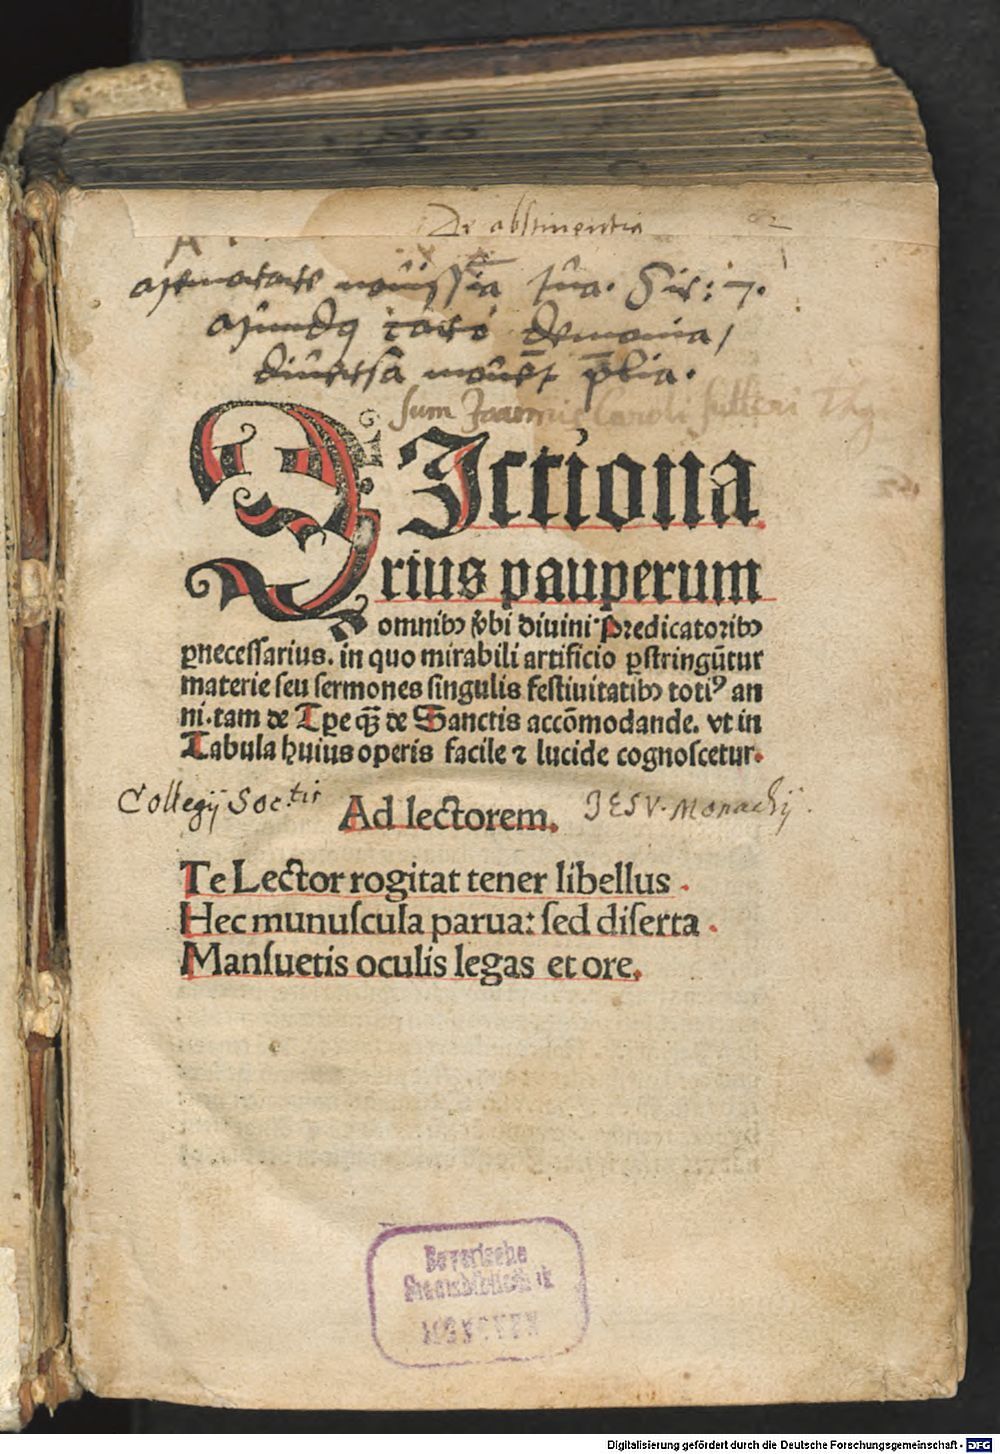 De abstinentia
tua.
diversa
sum Joannis Caroli
DIctiona
rius pauperum
omnibꝫ v̾bi diuini Predicatoribꝫ
ꝑnecessarius. in quo mirabili artificio ꝑstringūtur
materie seu sermones singulis festiuitatibꝫ totiꝰ an
ni. tam de Tꝑe qꝫ̄ de Sanctis accōmodande. vt in
Tabula huius operis facile ⁊ lucide cognoscetur.
Collegij Soc.tis JESV. Monachij.
Ad lectorem.
Te Lector rogitat tener libellus.
Hec munuscula parua: sed diserta.
Mansuetis oculis legas et ore.
Bayerische
Staatsbibliothek
MÜNCHEN
Digitalisierung gefördert durch die Deutsche Forschungsgemeinschaft - DFG